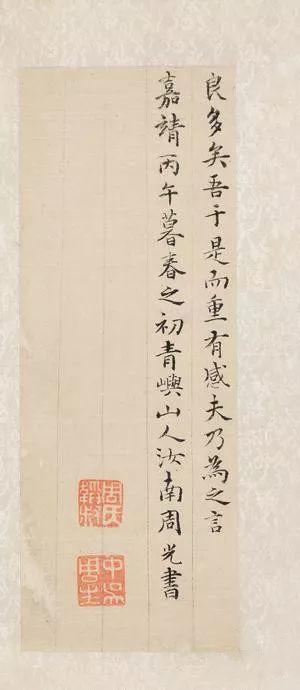 良多矣吾于是而重有感夫乃為之言
嘉靖丙午暮春之初青嶼山人汝南周光書